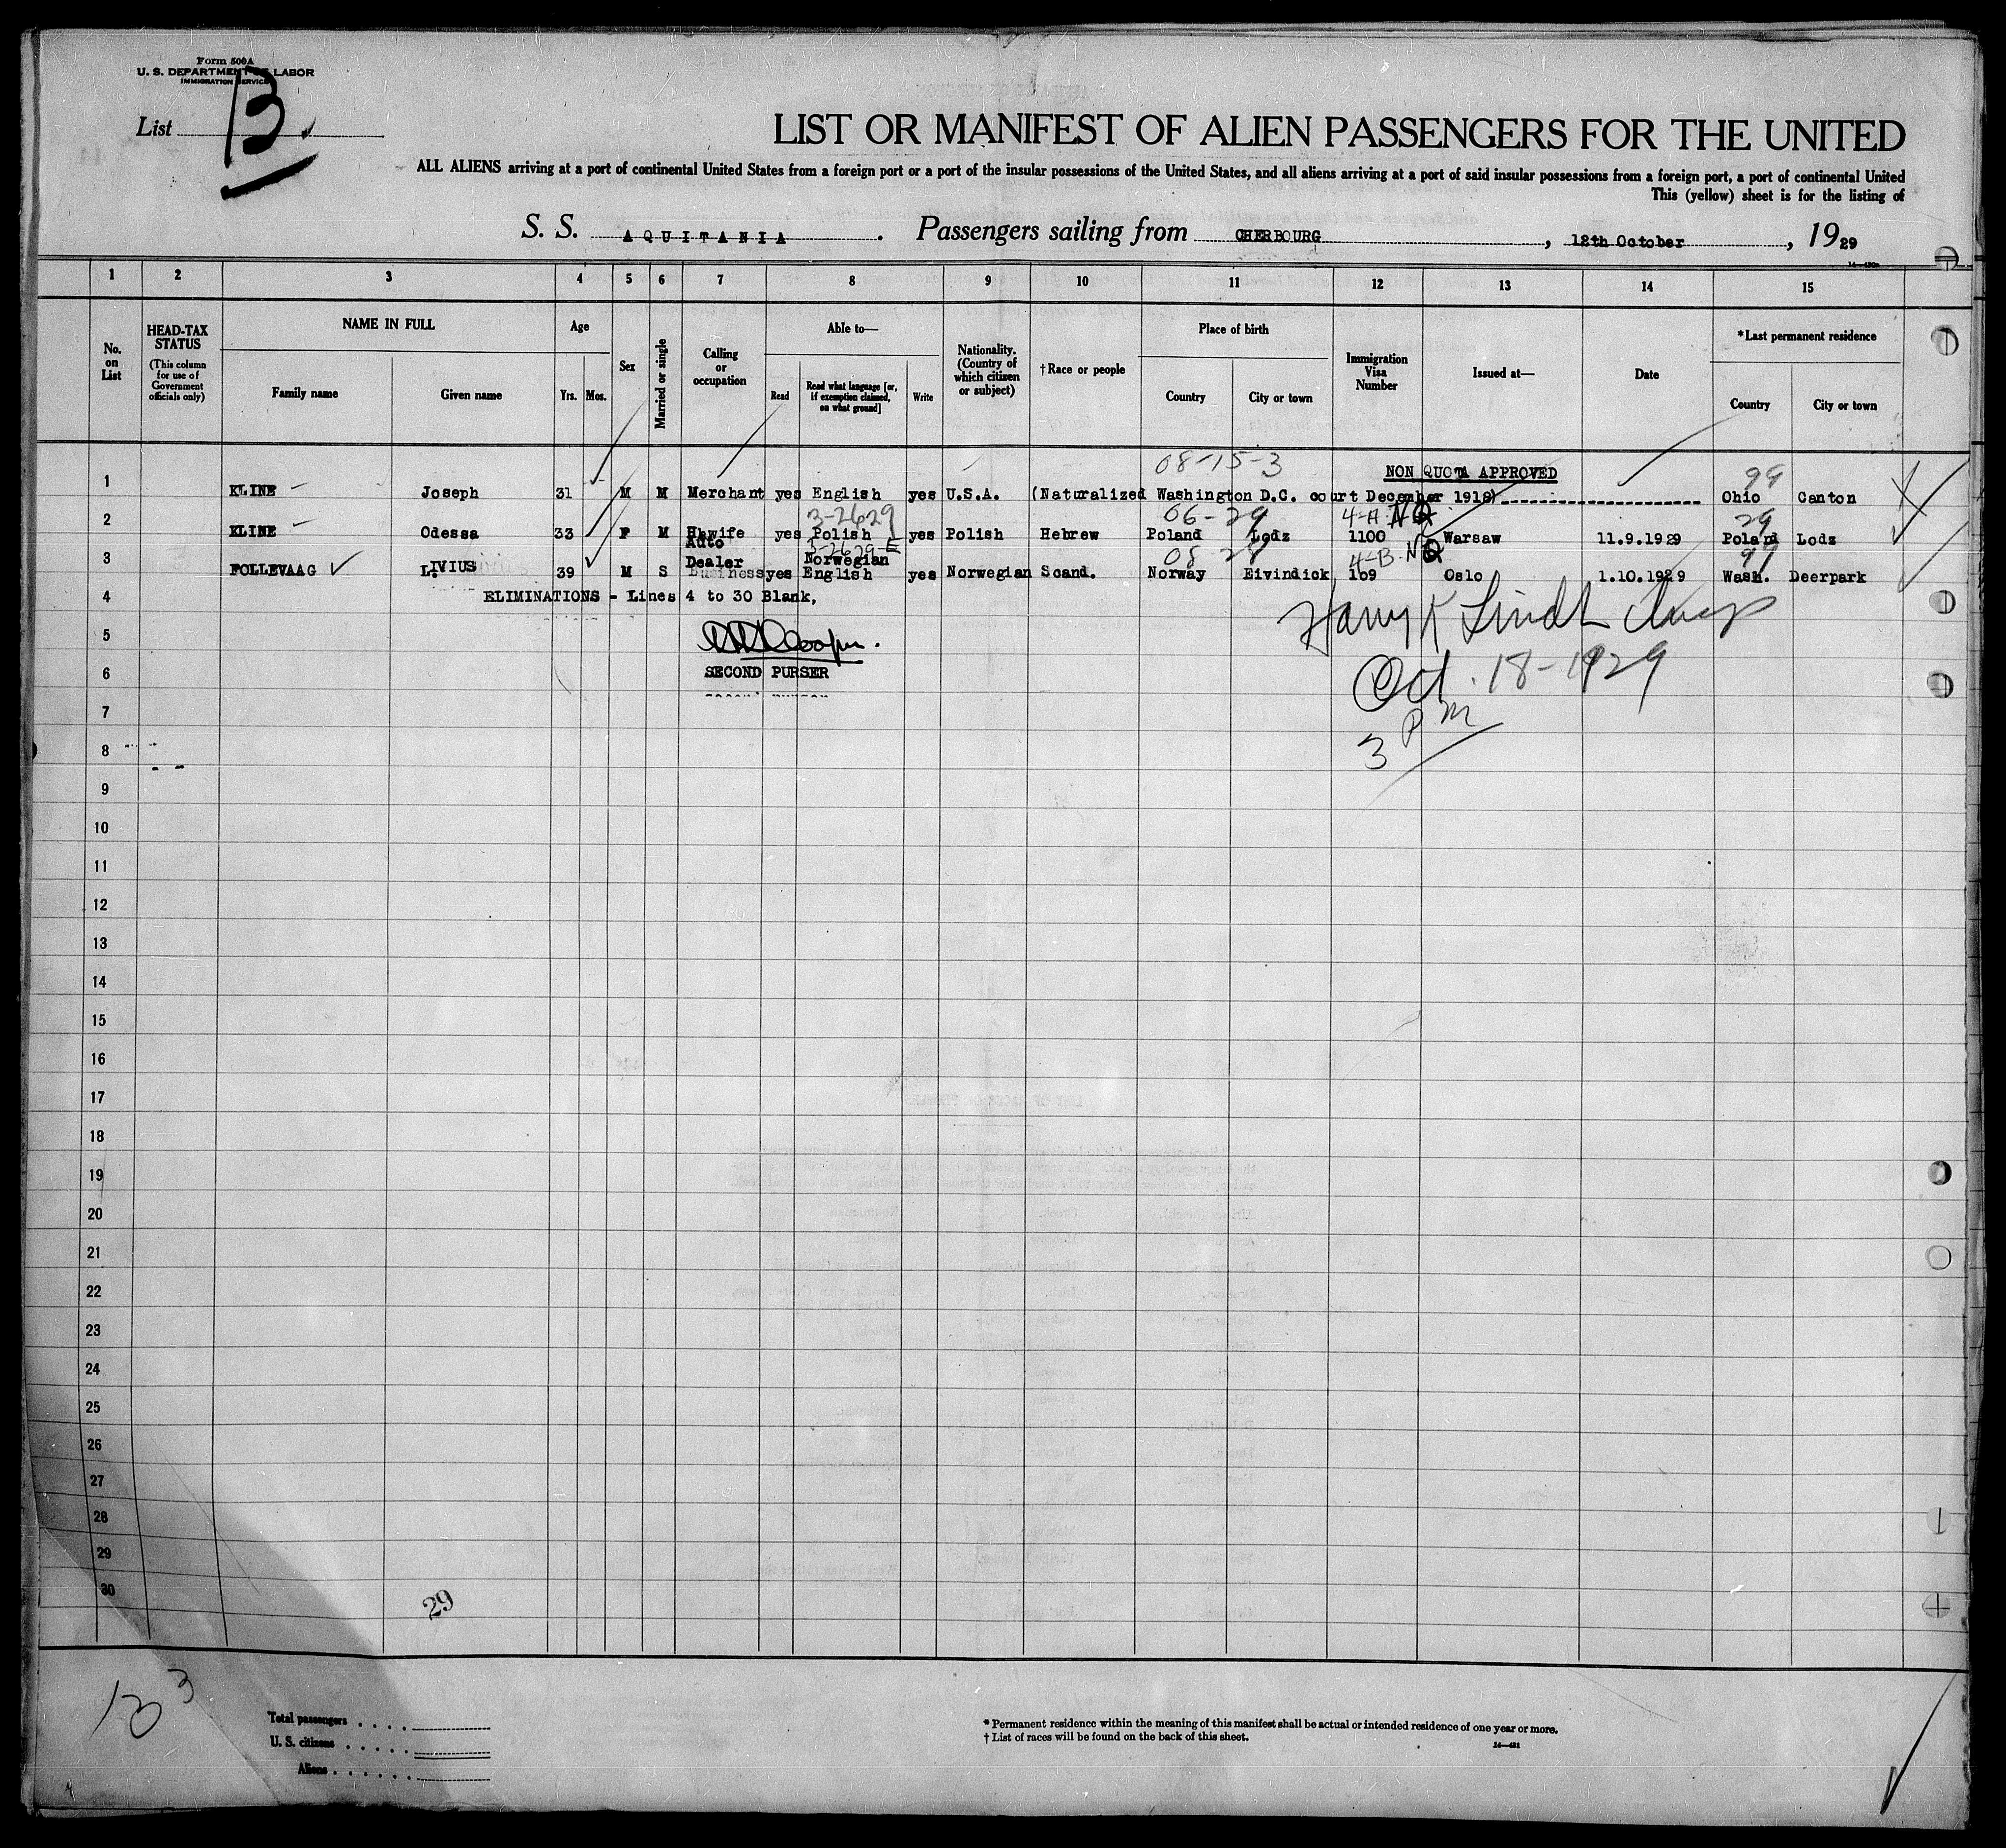 Form 500A
U. S. DEPARTMENT OF LABOR
IMMIGRATION SERVICE
List B
LIST OR MANIFEST OF ALIEN PASSENGERS FOR THE UNITED
ALL ALIENS arriving at a port of continental United States from a foreign port or a port of the insular possessions of the United States, and all aliens arriving at a port of said insular possessions from a foreign port, a port of continental United
This (yellow) sheet is for the listing of
S. S. AQUITANIA. Passengers sailing from CHERBOURG, 12th October, 1929
1 2 3 4 5 6 7 8 9 10 11 12 13 14 15
No. on List
HEAD-TAX STATUS
(This column for use of Government officials only)
NAME IN FULL
Family name Given name
Age
Yrs. Mos.
Sex
Married or single
Calling or occupation
Able to—
Read
Read what language [or, if exemption claimed, on what ground]
Write
Nationality. (Country of which citizen or subject)
†Race or people
Place of birth
Country City or town
Immigration Visa Number
Issued at—
Date
*Last permanent residence
Country City or town
08-15-3 NON QUOTA APPROVED 99
1 KLINE Joseph 31 M M Merchant yes English yes U.S.A. (Naturalized Washington D.C. court December 1918) Ohio Canton
3-2629 06-29 4-A NQ 29
2 KLINE Odessa 33 F M Hswife yes Polish yes Polish Hebrew Poland Lodz 1100 Warsaw 11.9.1929 Poland Lodz
Auto 3-2629-E 08 28 4-B NQ 99
Dealer Norwegian
3 FOLLEVAAG L.IVIUS 39 M S Business yes English yes Norwegian Scand. Norway Eivindick 169 Oslo 1.10.1929 Wash. Deerpark
4 ELIMINATIONS - Lines 4 to 30 Blank,
Harry K Lindh
5
SECOND PURSER
6
Oct. 18-1929
3 PM
7
8
9
10
11
12
13
14
15
16
17
18
19
20
21
22
23
24
25
26
27
28
29
30
29
B 3
Total passengers
U. S. citizens
Aliens
* Permanent residence within the meaning of this manifest shall be actual or intended residence of one year or more.
† List of races will be found on the back of this sheet.